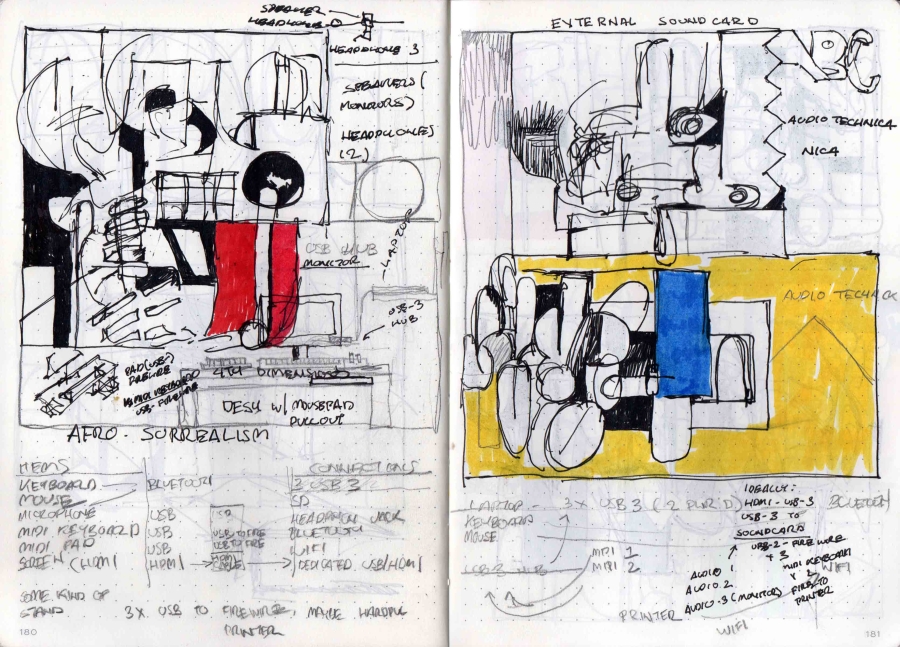 SPEAKER
HEADPHONE
HEADPHONE 3
SPEAKERS (
MONITORS)
HEADPHONES
(2)
USB HUB
MONITOR
LAPTOP
USB-3
HUB
PAD (USB)
FIREWIRE
MIDI KEYBOARD
USB-FIREWIRE
4TH DIMENSION
DESK W/ MOUSEPAD
PULLOUT
AFRO-SURREALISM
ITEMS CONNECTIONS
KEYBOARD BLUETOOTH 3 USB 3
MOUSE SD
MICROPHONE USB HEADPHONE JACK
MIDI KEYBOARD USB USB TO FIRE BLUETOOTH
MIDI PAD USB USB TO FIRE WIFI
SCREEN (HDMI HDMI HDMI CABLE DEDICATED USB/HDMI
SOME KIND OF
STAND 3X USB TO FIREWIRE, MAYBE
PRINTER
180
EXTERNAL SOUNDCARD
AUDIO TECHNICA
NICA
AUDIO TECHNICA
LAPTOP - 3X USB 3 (2 PWR'D)
KEYBOARD
MOUSE
MIDI 1
USB-3 HUB MIDI 2
IDEALLY:
HDMI - USB-3
USB-3 TO
SOUNDCARD
USB-2 - FIREWIRE
+ 3
MIDI KEYBOARD
WIFI
AUDIO 1
AUDIO 2
AUDIO-3 (MONITOR)
FIRE TO
PRINTER
PRINTER
WIFI
181